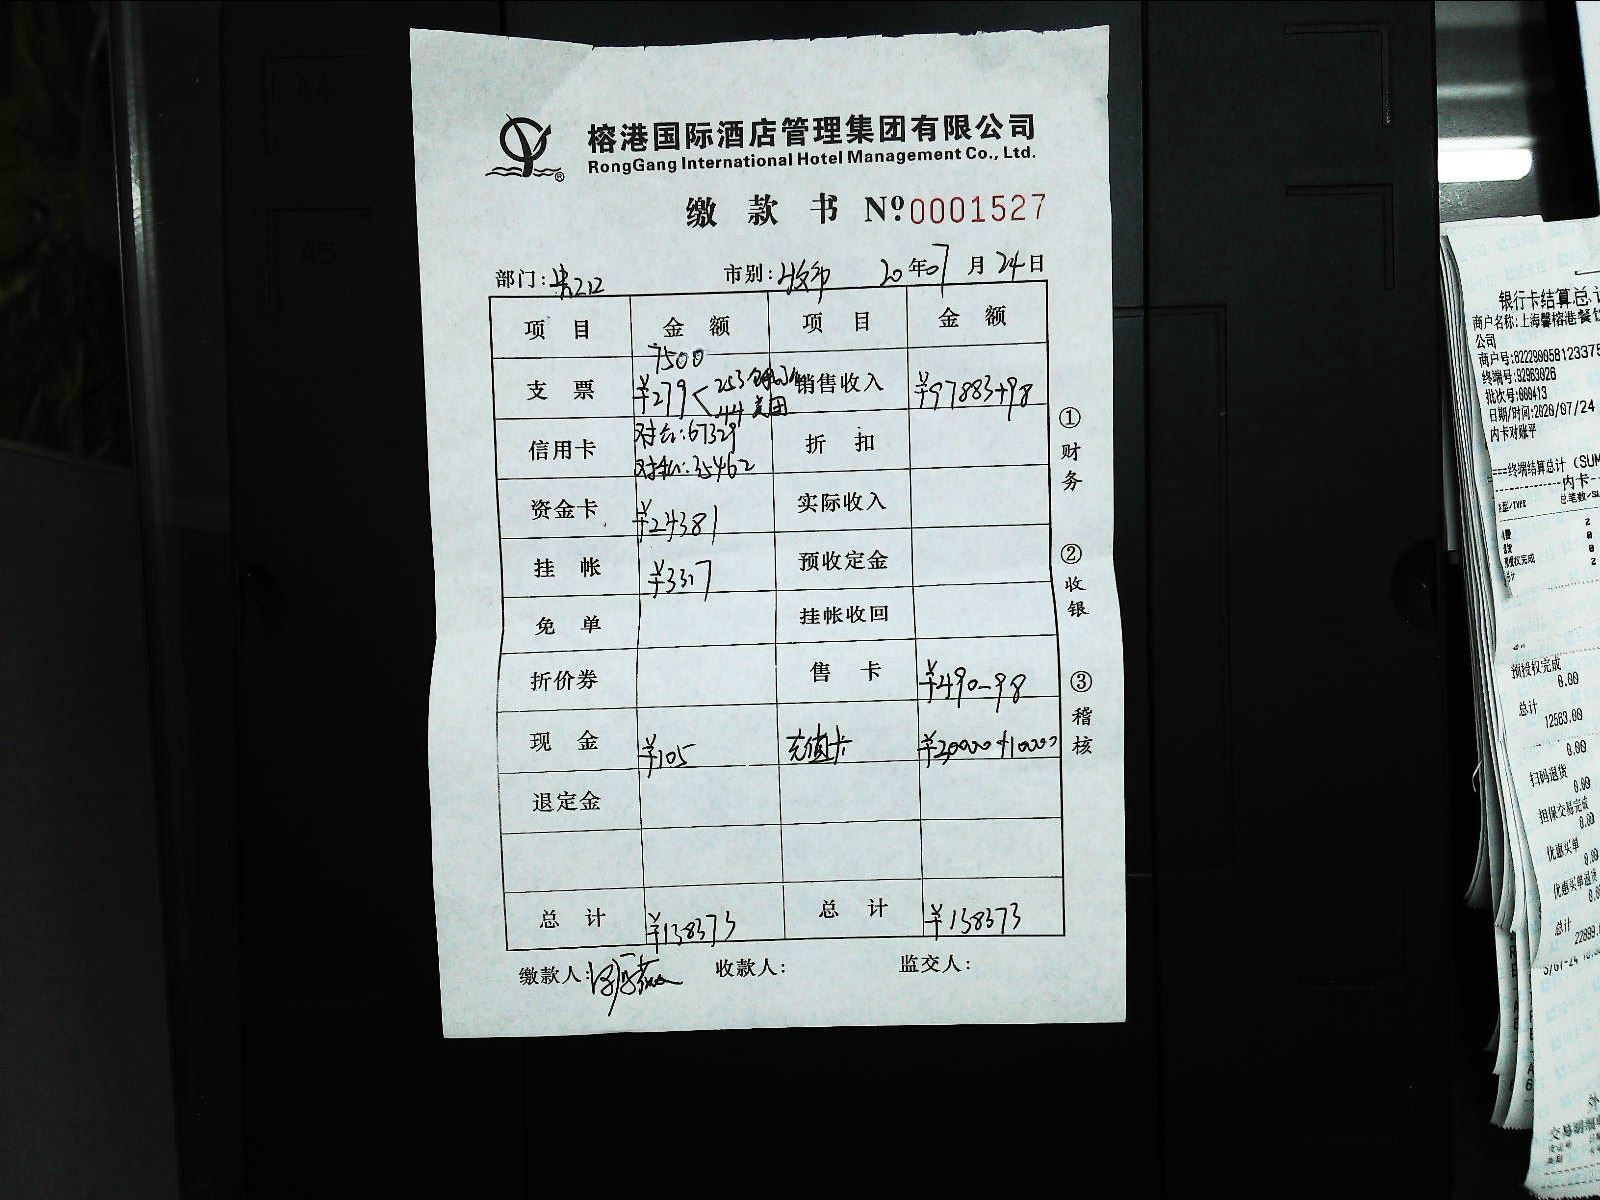 榕港国际酒店管理集团有限公司
RongGang International Hotel Management Co., Ltd.
缴 款 书 Nº 0001527
部门: 市别: 20年07月24日
项 目 金 额 项 目 金 额
7500
支 票 ¥279 < 253 销售收入 ¥97883+98
44 美团
信用卡 67329 折 扣
35462
资金卡 ¥24381 实际收入
挂 帐 ¥3317 预收定金
免 单 挂帐收回
折价券 售 卡 ¥490-98
现 金 ¥105 充值卡 ¥20000+10000
退定金
总 计 ¥138373 总 计 ¥138373
缴款人: 收款人: 监交人:
①财务
②收银
③稽核
A4
A5
银行卡结算总
商户名称:上海馨榕港餐饮
公司
商户号:822290058123375
终端号:92963026
批次号:000413
日期/时间:2020/07/24
内卡对账平
===终端结算总计 (SUM
内卡
预授权完成
0.00
总计
12563.00
0.00
扫码退货
0.00
担保交易完成
0.00
优惠买单
0.00
优惠买单退货
总计